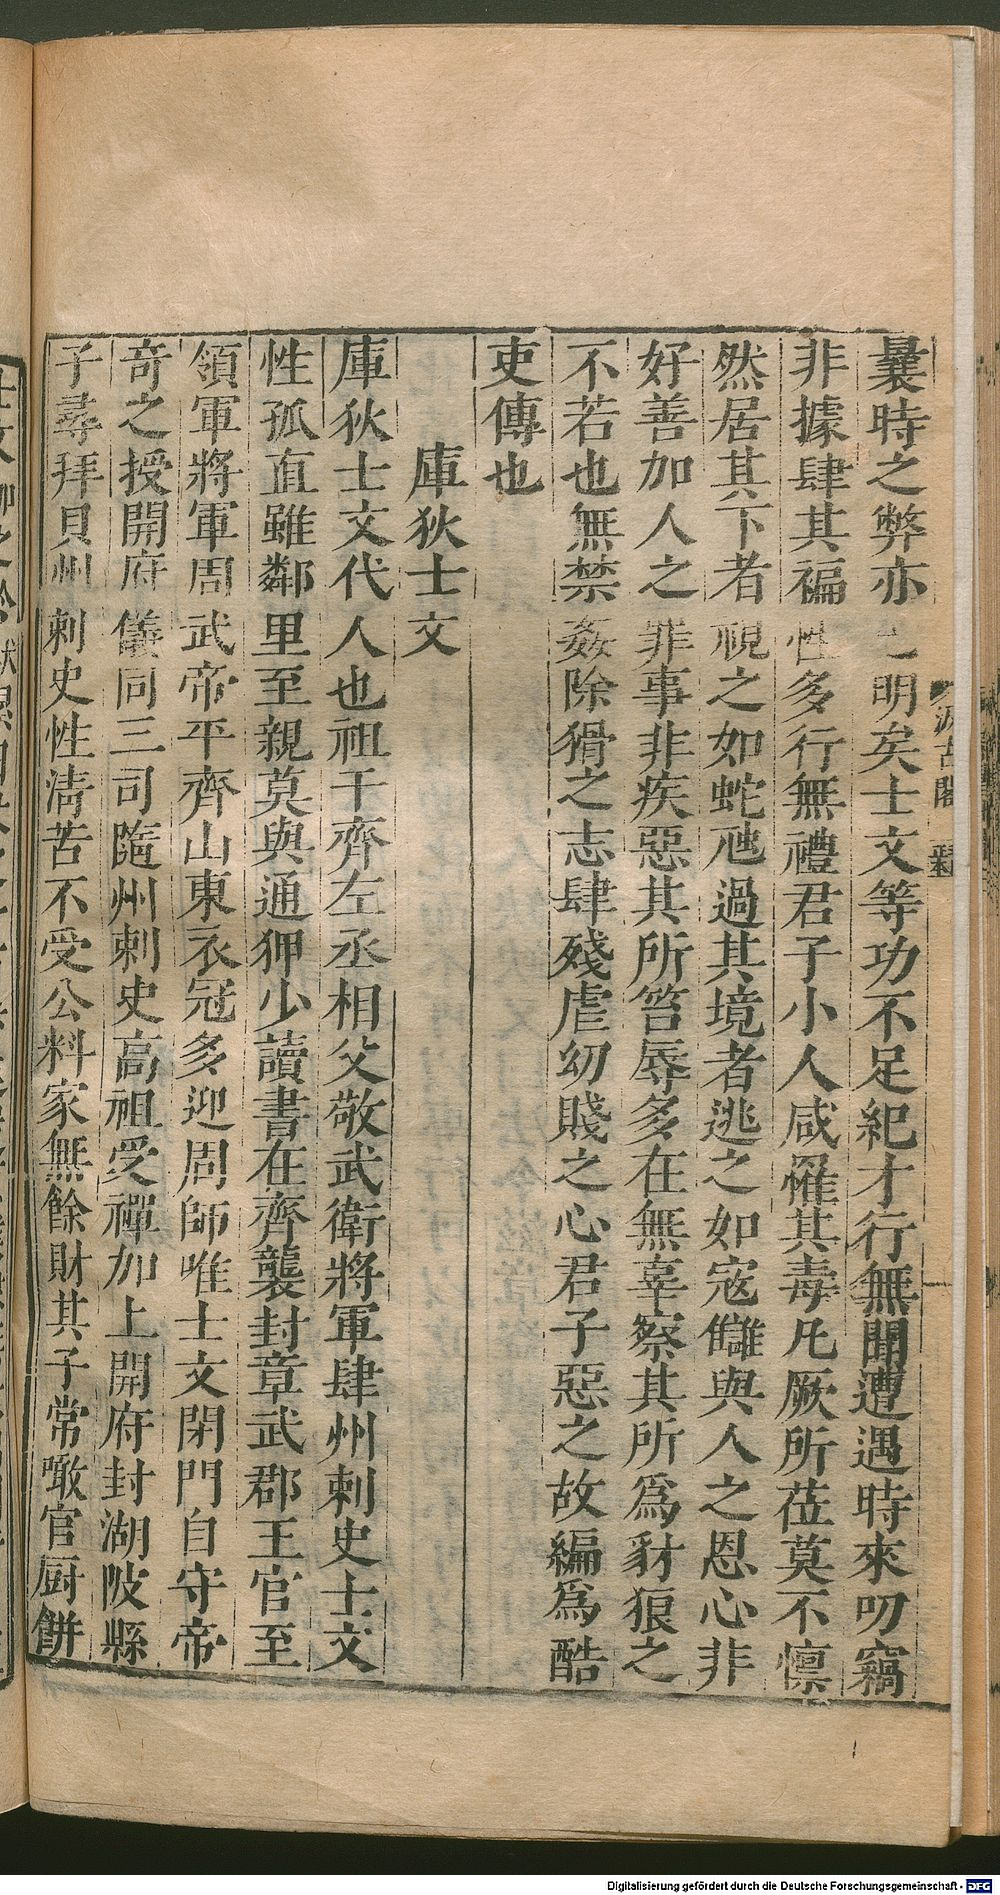 曩時之弊亦已明矣士文等功不足紀才行無聞遭遇時來叨竊
非據肆其褊性多行無禮君子小人咸罹其毒凡厥所莅莫不懔
然居其下者視之如蛇虺過其境者逃之如寇讎與人之恩心非
好善加人之罪事非疾惡其所笞辱多在無辜察其所為豺狼之
不若也無禁姦除猾之志肆殘虐幼賤之心君子惡之故編為酷
吏傳也
庫狄士文
庫狄士文代人也祖干齊左丞相父敬武衛將軍肆州刺史士文
性孤直雖鄰里至親莫與通狎少讀書在齊襲封章武郡王官至
領軍將軍周武帝平齊山東衣冠多迎周師唯士文閉門自守帝
奇之授開府儀同三司隨州刺史高祖受禪加上開府封湖陂縣
子尋拜貝州刺史性清苦不受公料家無餘財其子常噉官厨餅
Digitalisierung gefördert durch die Deutsche Forschungsgemeinschaft - DFG